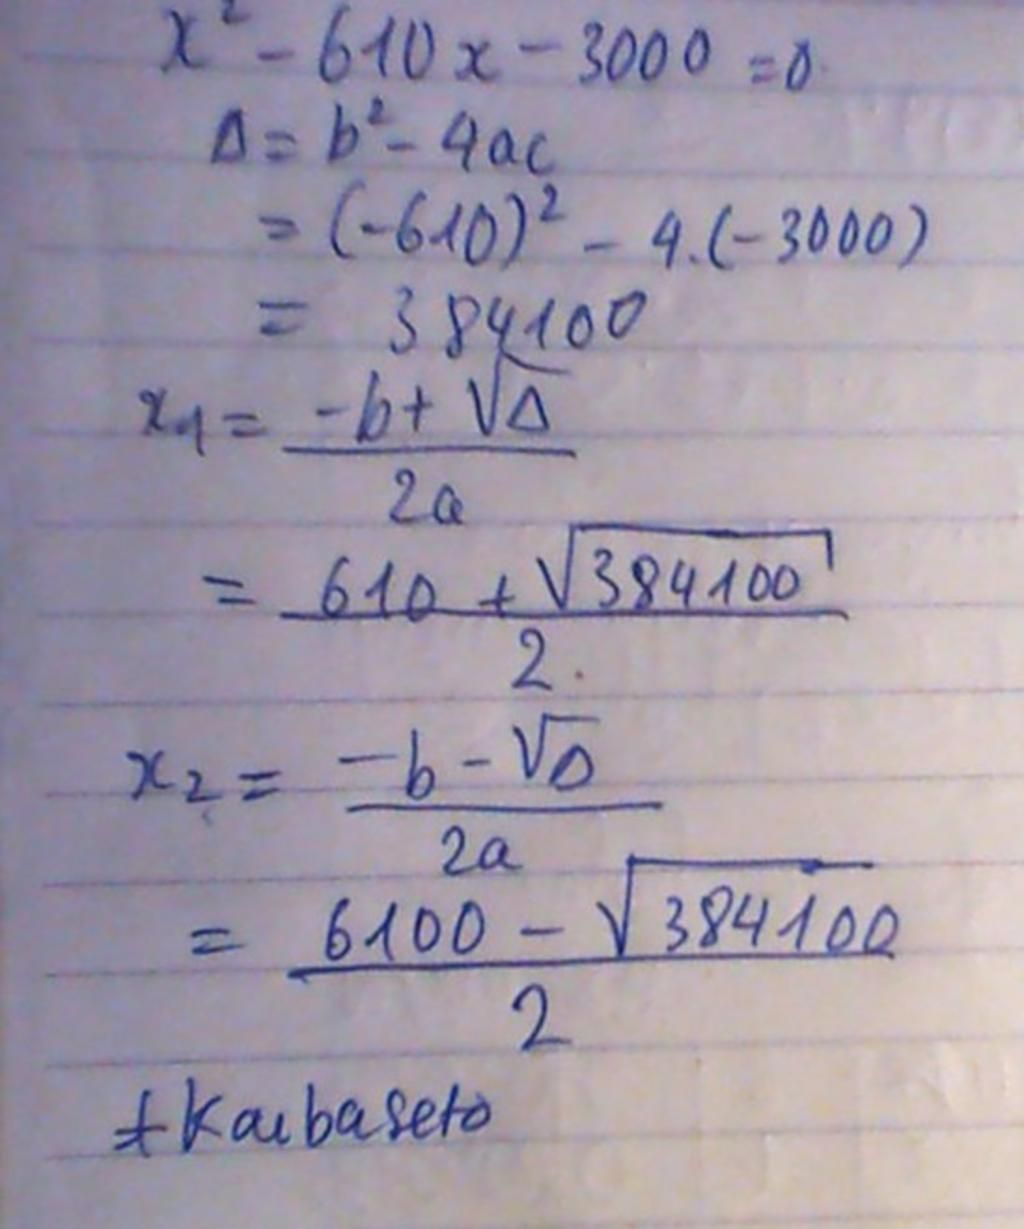 x² - 610x - 3000 = 0
Δ = b² - 4ac
= (-610)² - 4.(-3000)
= 384100
x₁ = (-b + √Δ) / 2a
= (610 + √384100) / 2.
x₂ = (-b - √Δ) / 2a
= (6100 - √384100) / 2
+Kaibaseto